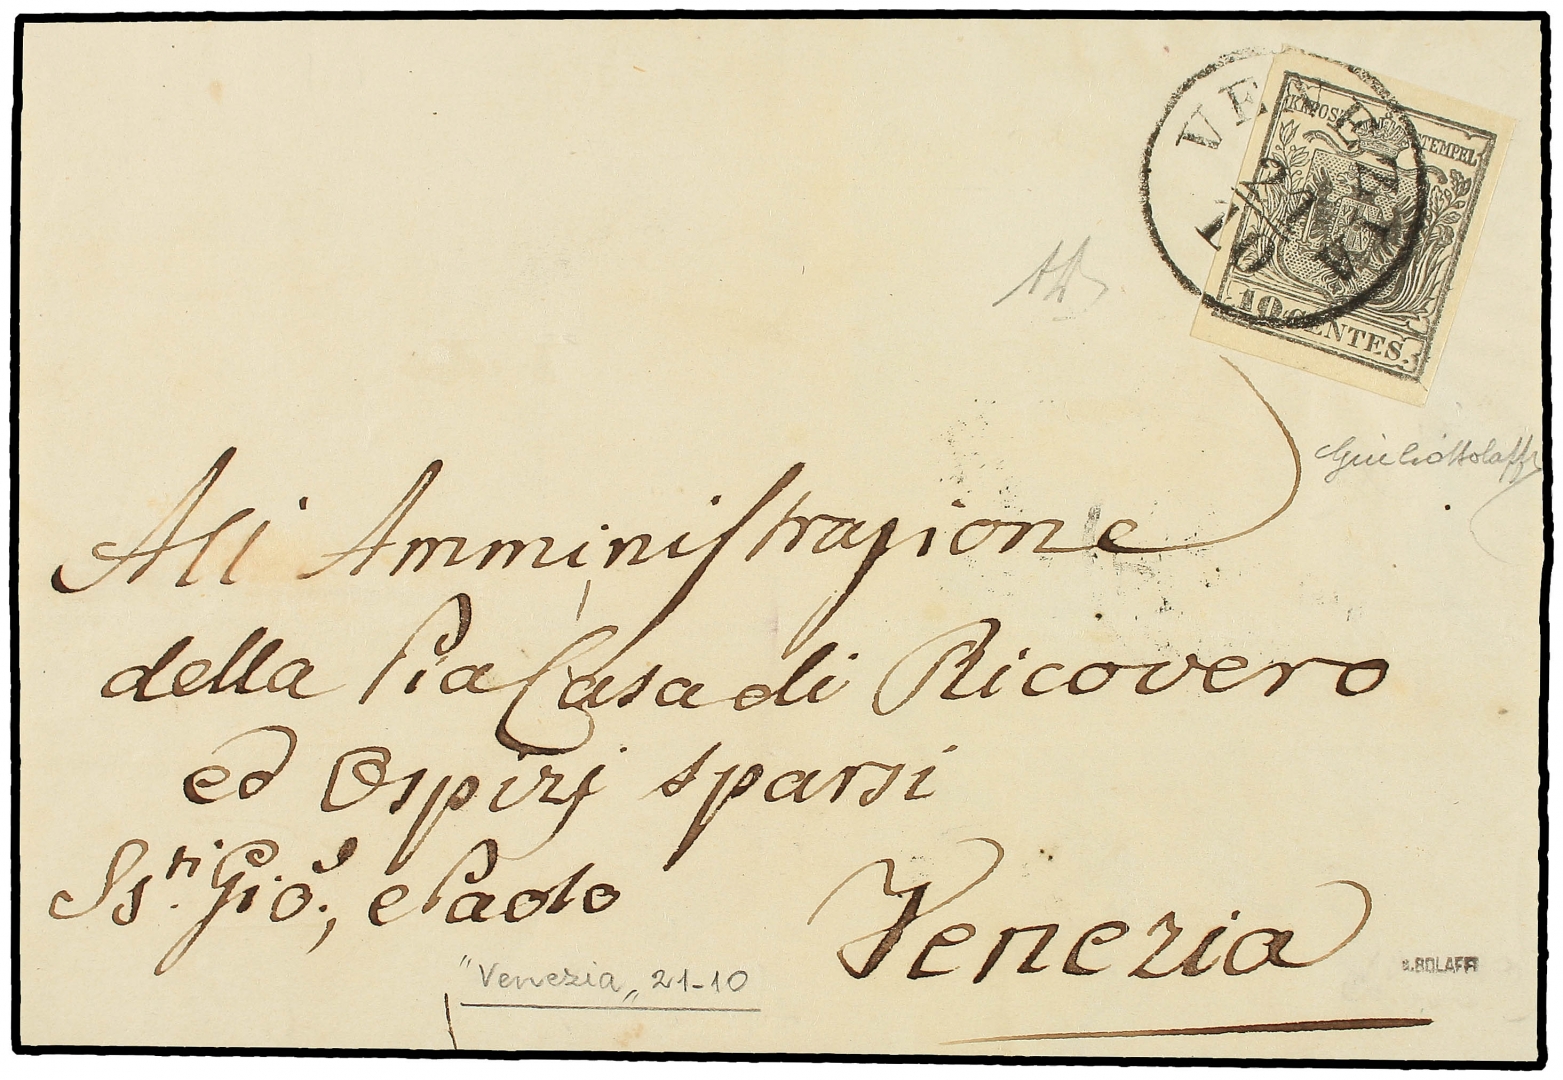 VENEZIA
21
10
KKPOST STEMPEL
10 CENTES.
Giulio Bolaffi
All' Amministrazione
della Pia Casa di Ricovero
ed Ospizj sparsi
Ss.ri Gio., e Paolo
Venezia
"Venezia„ 21-10
G.BOLAFFI